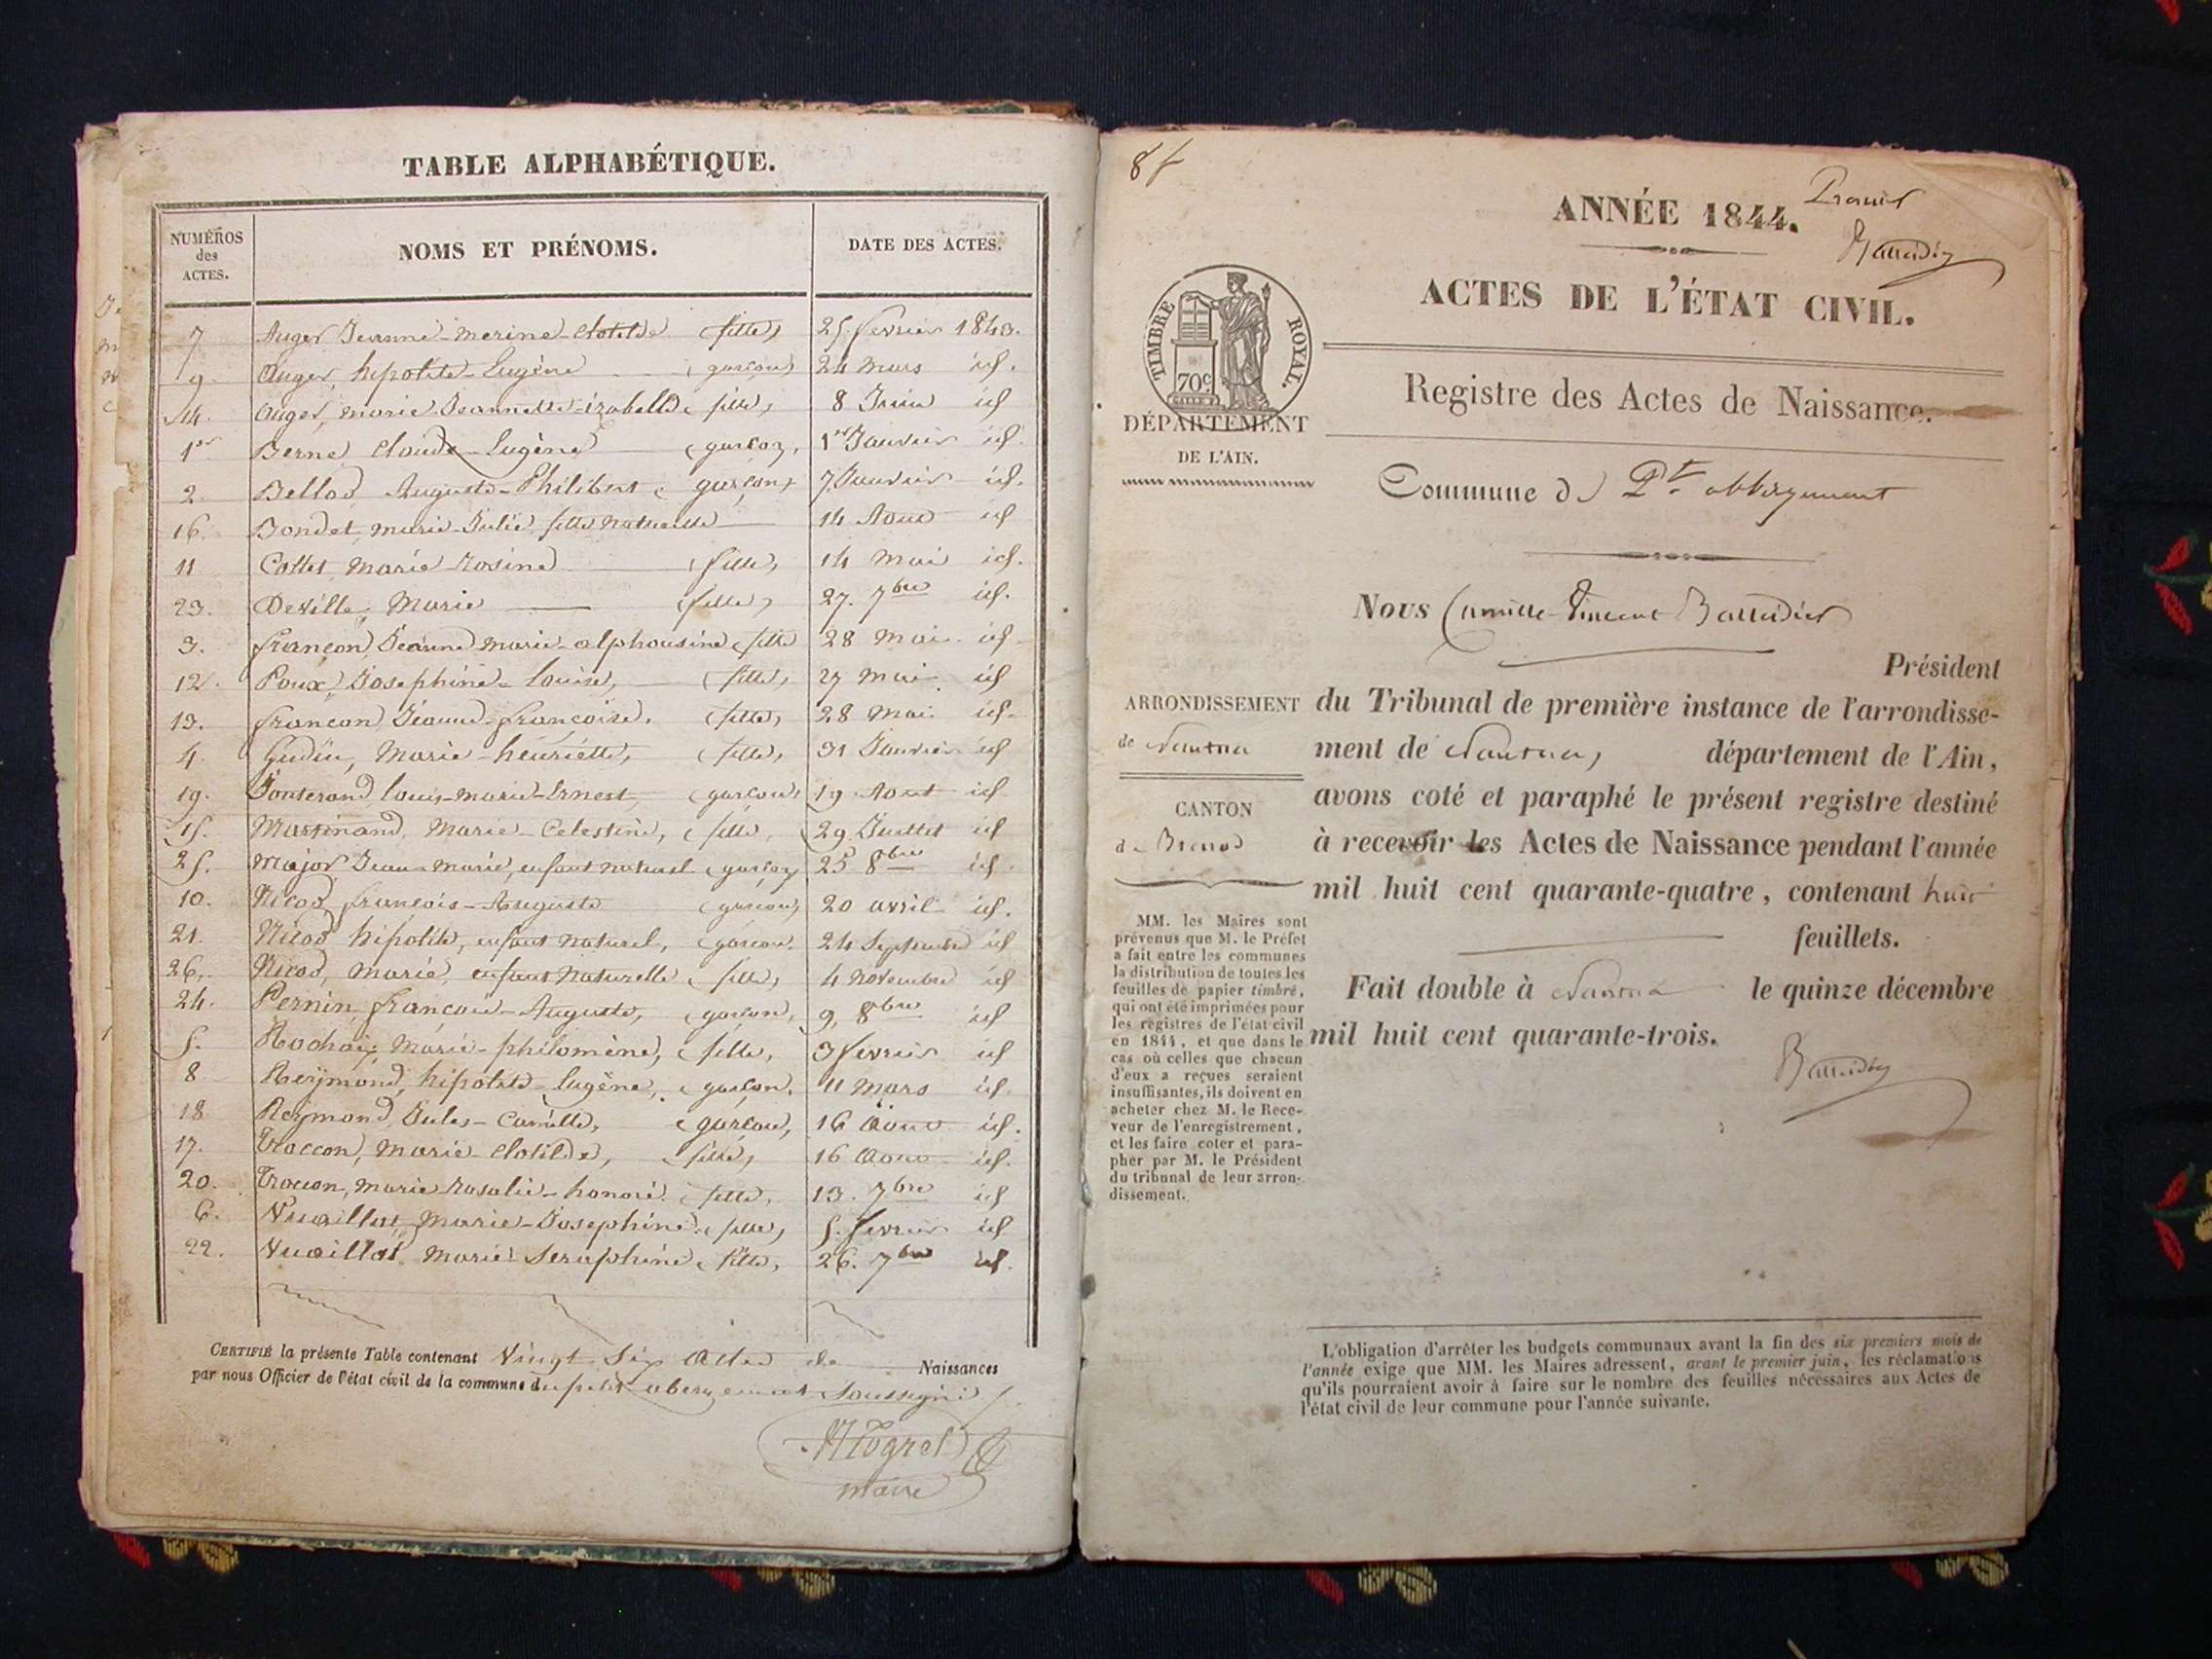 TABLE ALPHABÉTIQUE.
NUMÉROS des ACTES.
NOMS ET PRÉNOMS.
DATE DES ACTES.
7 Auger Jeanne-Merine-Clotilde (fille) 25 fevrier 1843.
9. Auger, hipolite-Eugène (garçon) 24 Mars id.
14. Auger, marie Jeannette-izabelle (fille) 8 Juin id
1er Berne Claude-Eugène (garçon) 1er Janvier id.
2. Bellod Auguste-Philibert (garçon) 7 Janvier id.
16. Bondet, marie-Julie, fille naturelle 14 Aout id
11 Collet Marie-Rosine (fille) 14 Mai id.
23. Deville, Marie (fille) 27. 7bre id.
3. françon, Jeanne marie-alphonsine (fille 28 mai id
12. Poux, Josephine-Louise, (fille) 27 mai id
13. françon, Jeanne-françoise. (fille) 28 Mai id.
4. Gudin, Marie-henriette, (fille) 31 Janvier id
19. Louis-marie-Ernest (garçon) 19 Aout id
15. Martinand, Marie-Celestine, (fille) 29 Juillet id
25. Major Jean-Marie, enfant naturel (garçon) 25 8bre id.
10. Nicod, françois-Auguste (garçon) 20 avril id.
21. Nicod hipolite, enfant naturel, (garçon. 24 Septembre id
26. Nicod, Marie, enfant naturelle (fille) 4 Novembre id
24. Pernin, françois-Auguste, (garçon) 9, 8bre id
5. Marie-philomène, (fille, 3 fevrier id
8 Reymond, hipolite-Eugène, (garçon. 11 Mars id.
18 Reymond, Jules-Camille, (garçon, 16 Aout id.
17. Traccon, Marie-Clotilde, (fille, 16 Aout id.
20. marie Rosalie-honoré. (fille, 13. 7bre id
6. Vuaillat, Marie-Josephine. (fille, 5. fevrier id
22. Vuaillat Marie Seraphine (fille, 26. 7bre id.
CERTIFIÉ la présente Table contenant Vingt Six Actes de Naissances
par nous Officier de l'état civil de la commune du petit abergement Soussigné
maire
8 f
ANNÉE 1844.
ACTES DE L'ÉTAT CIVIL.
TIMBRE ROYAL.
70c.
Registre des Actes de Naissance.
DÉPARTEMENT
DE L'AIN.
Commune de Pt abbergement
Nous Camille-Vincent Balladier
Président
ARRONDISSEMENT
de Nantua
du Tribunal de première instance de l'arrondisse-
ment de Nantua, département de l'Ain,
avons coté et paraphé le présent registre destiné
CANTON
de Brenod
à recevoir les Actes de Naissance pendant l'année
mil huit cent quarante-quatre, contenant huit
feuillets.
Fait double à Nantua le quinze décembre
mil huit cent quarante-trois.
MM. les Maires sont
prévenus que M. le Préfet
a fait entre les communes
la distribution de toutes les
feuilles de papier timbré,
qui ont été imprimées pour
les registres de l'état civil
en 1844, et que dans le
cas où celles que chacun
d'eux a reçues seraient
insuffisantes, ils doivent en
acheter chez M. le Rece-
veur de l'enregistrement,
et les faire coter et para-
pher par M. le Président
du tribunal de leur arron-
dissement.
L'obligation d'arrêter les budgets communaux avant la fin des six premiers mois de
l'année exige que MM. les Maires adressent, avant le premier juin, les réclamations
qu'ils pourraient avoir à faire sur le nombre des feuilles nécessaires aux Actes de
l'état civil de leur commune pour l'année suivante.